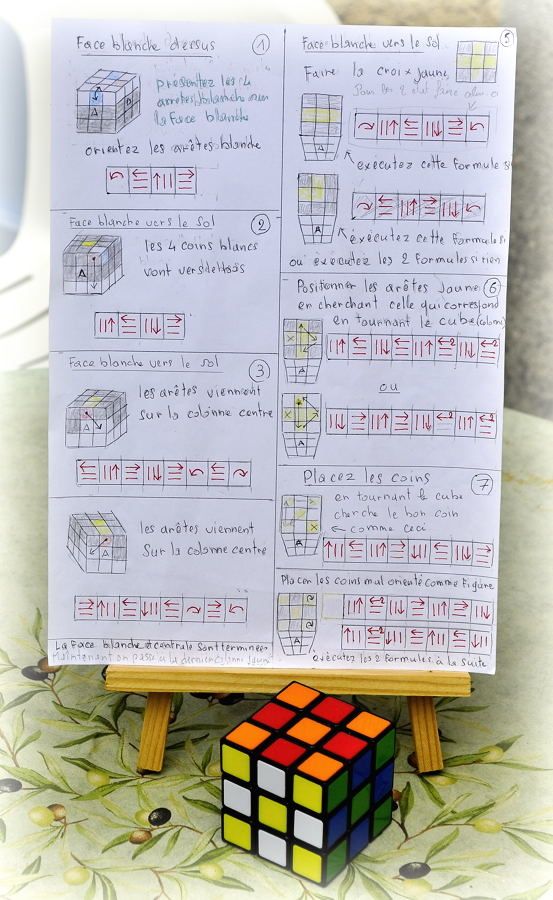 Face blanche dessus 1
présentez les 4
arrêtes blanche avec
la face blanche
orientez les arêtes blanche
Face blanche vers le sol 2
les 4 coins blancs
vont vers
Face blanche vers le sol 3
les arêtes viennent
sur la colonne centre
A
les arêtes viennent
Sur la colonne centre
La Face blanche et centrale sont terminée
Maintenant on passe a la dernière
Face blanche vers le sol 5
Faire la croix jaune
A
exécutez cette formule si
A
éxécutez cette formule si
ou éxécutez les 2 formules si rien
Positionner les arêtes jaune 6
en cherchant celle qui correspond
en tournant le cube
x
A
ou
x
A
Placez les coins 7
en tournant le cube
cherche le bon coin
comme ceci
x
A
Placer les coins mal orienté comme Figure
A
éxécutez les 2 formules à la suite